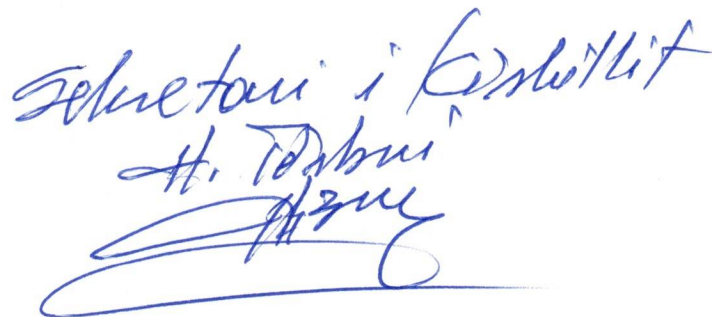 Sekretari i Këshillit
H. Tërbuni